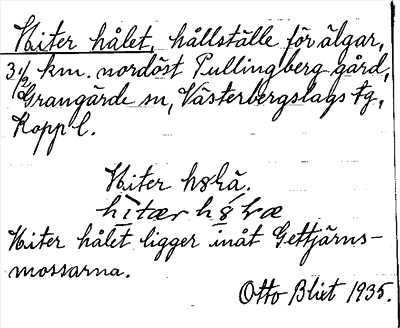 Hiter hålet, hållställe för älgar,
3 1/2 km. nordöst Pullingberg gård,
Grangärde sn, Västerbergslags tg,
Kopp l.
Hiter hålet ligger inåt Gettjärns-
mossarna.
Otto Blixt 1935.